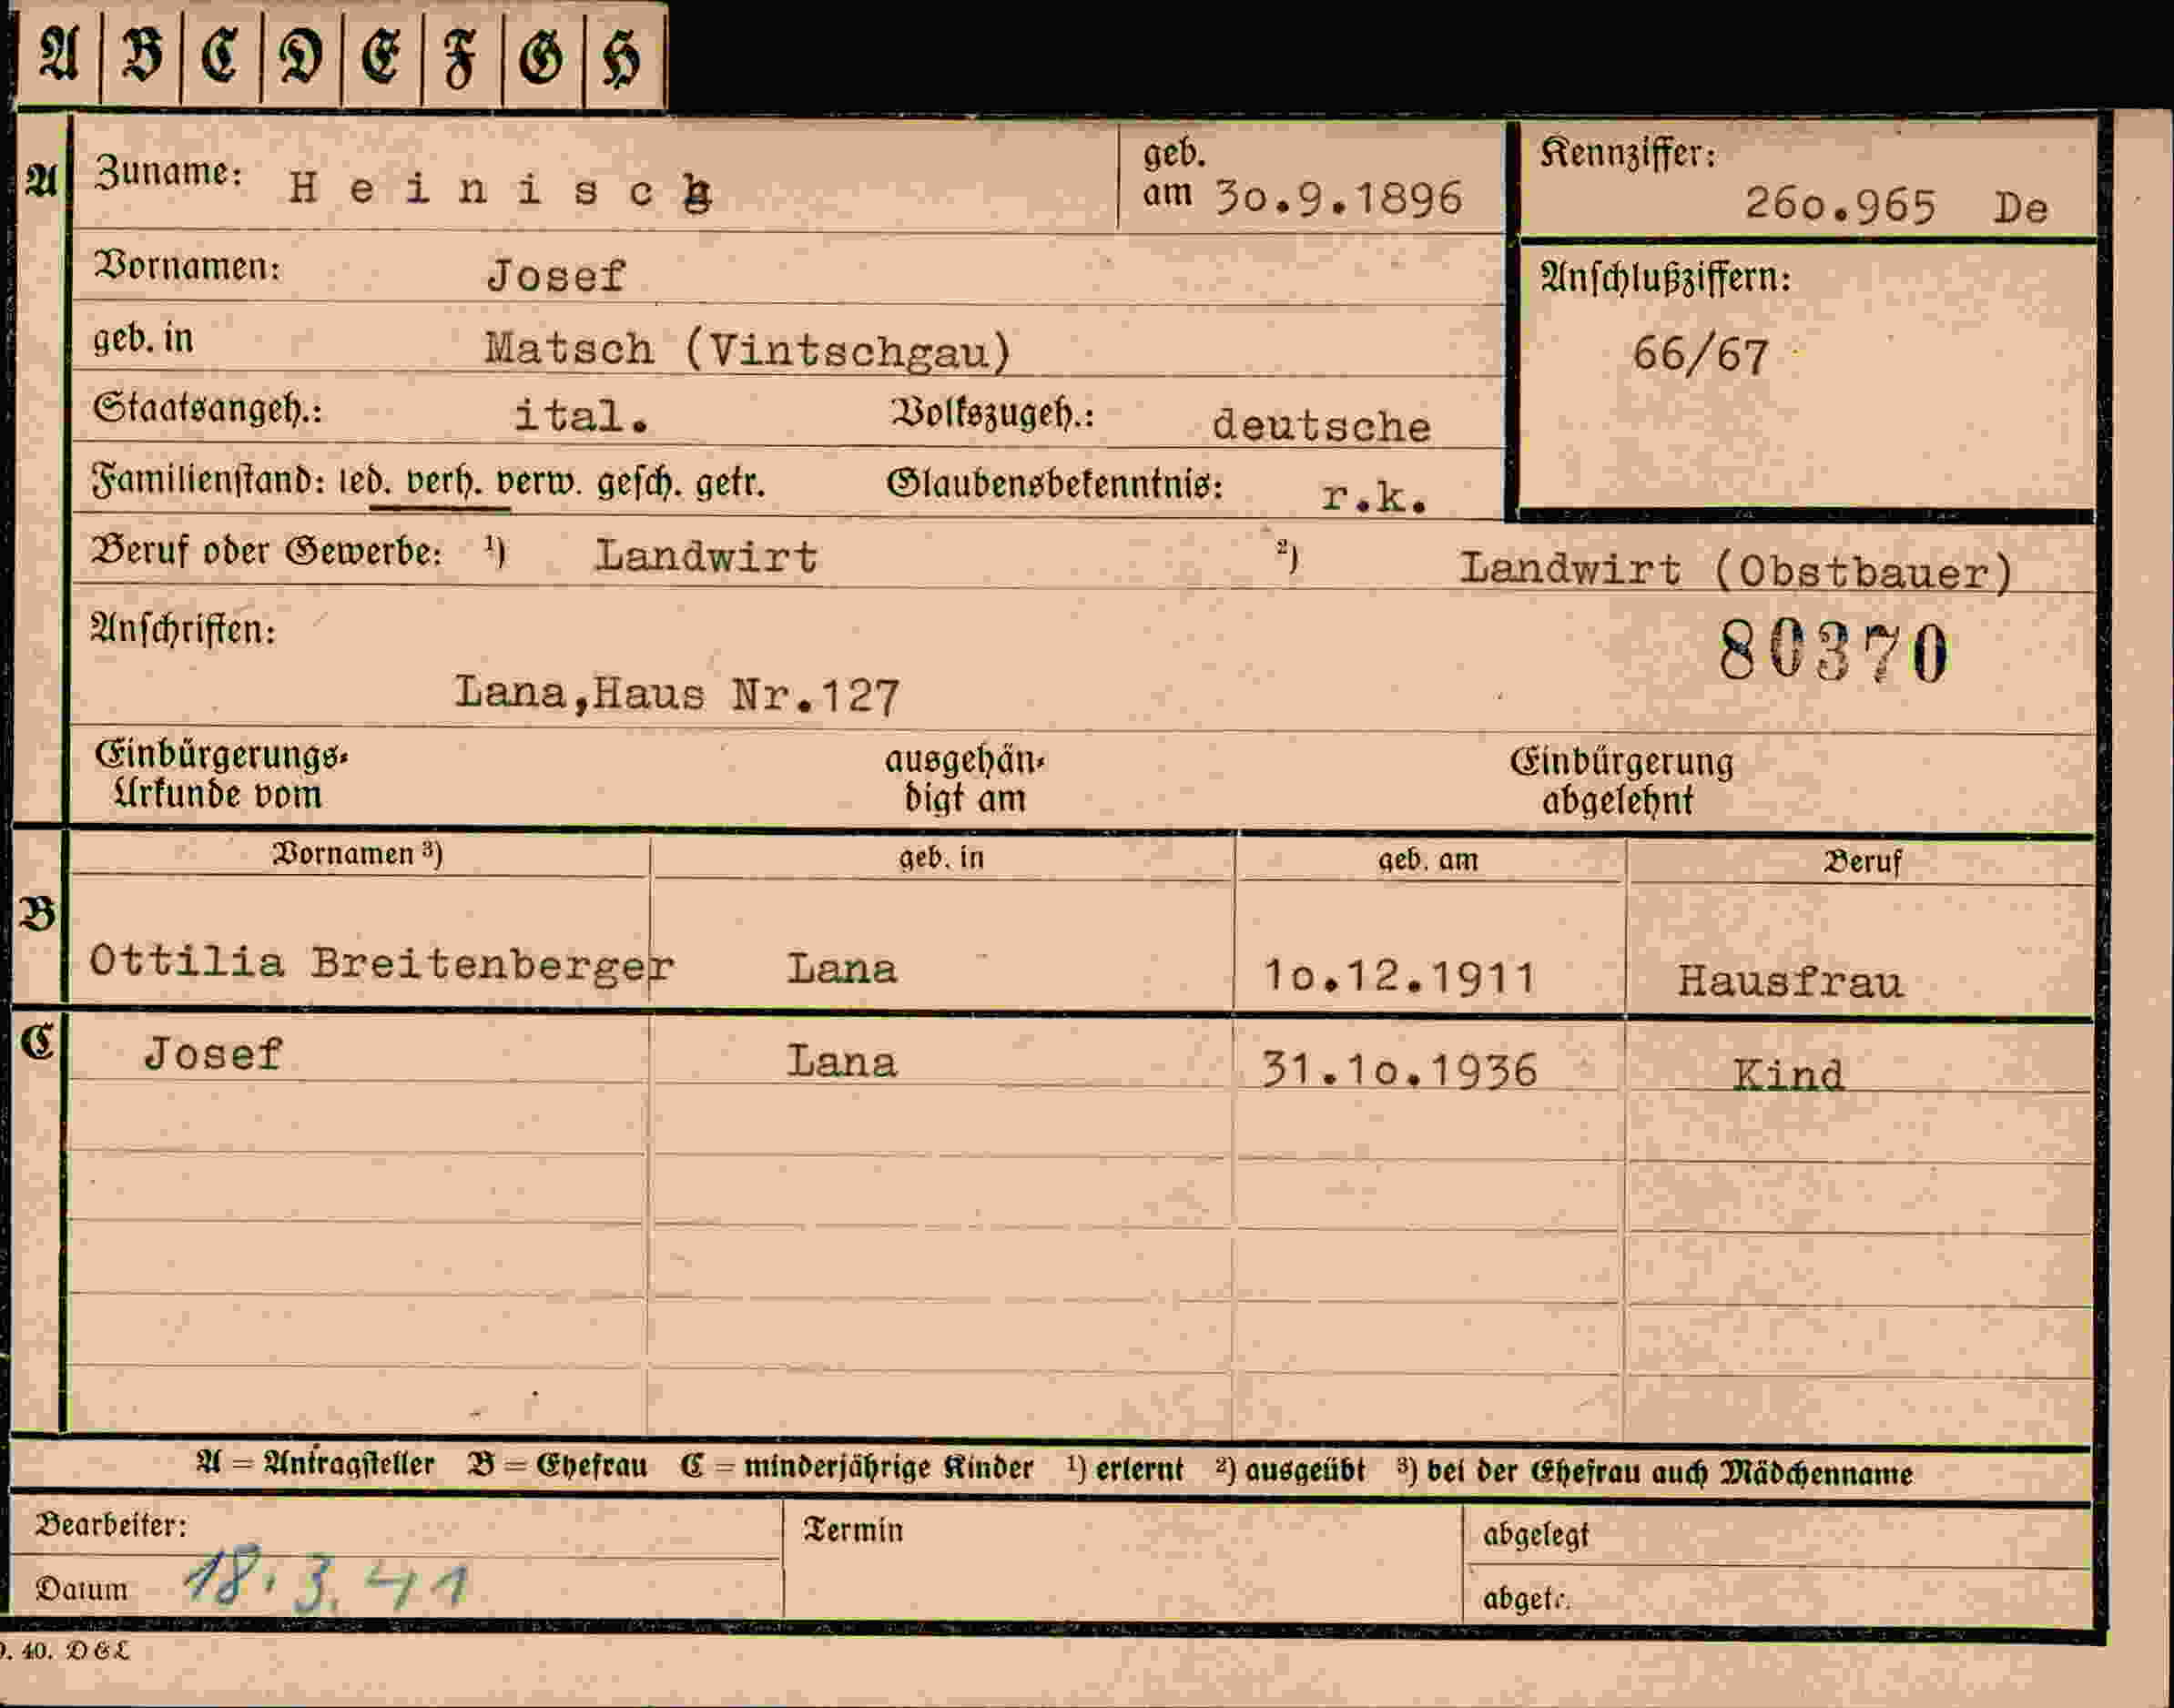 A B C D E F G H
A Zuname: Heinisch geb. am 30.9.1896 Kennziffer: 260.965 De
Vornamen: Josef Anschlußziffern:
geb. in Matsch (Vintschgau) 66/67
Staatsangeh.: ital. Volkszugeh.: deutsche
Familienstand: led. verh. verw. gesch. getr. Glaubensbekenntnis: r.k.
Beruf oder Gewerbe: ¹) Landwirt ²) Landwirt (Obstbauer)
Anschriften: 80370
Lana,Haus Nr.127
Einbürgerungs- ausgehän- Einbürgerung
Urkunde vom digt am abgelehnt
Vornamen ³) geb. in geb. am Beruf
B Ottilia Breitenberger Lana 10.12.1911 Hausfrau
C Josef Lana 31.10.1936 Kind
A = Antragsteller B = Ehefrau C = minderjährige Kinder ¹) erlernt ²) ausgeübt ³) bei der Ehefrau auch Mädchenname
Bearbeiter: Termin abgelegt
Datum 18.3.41 abgetr.
. 40. DEL